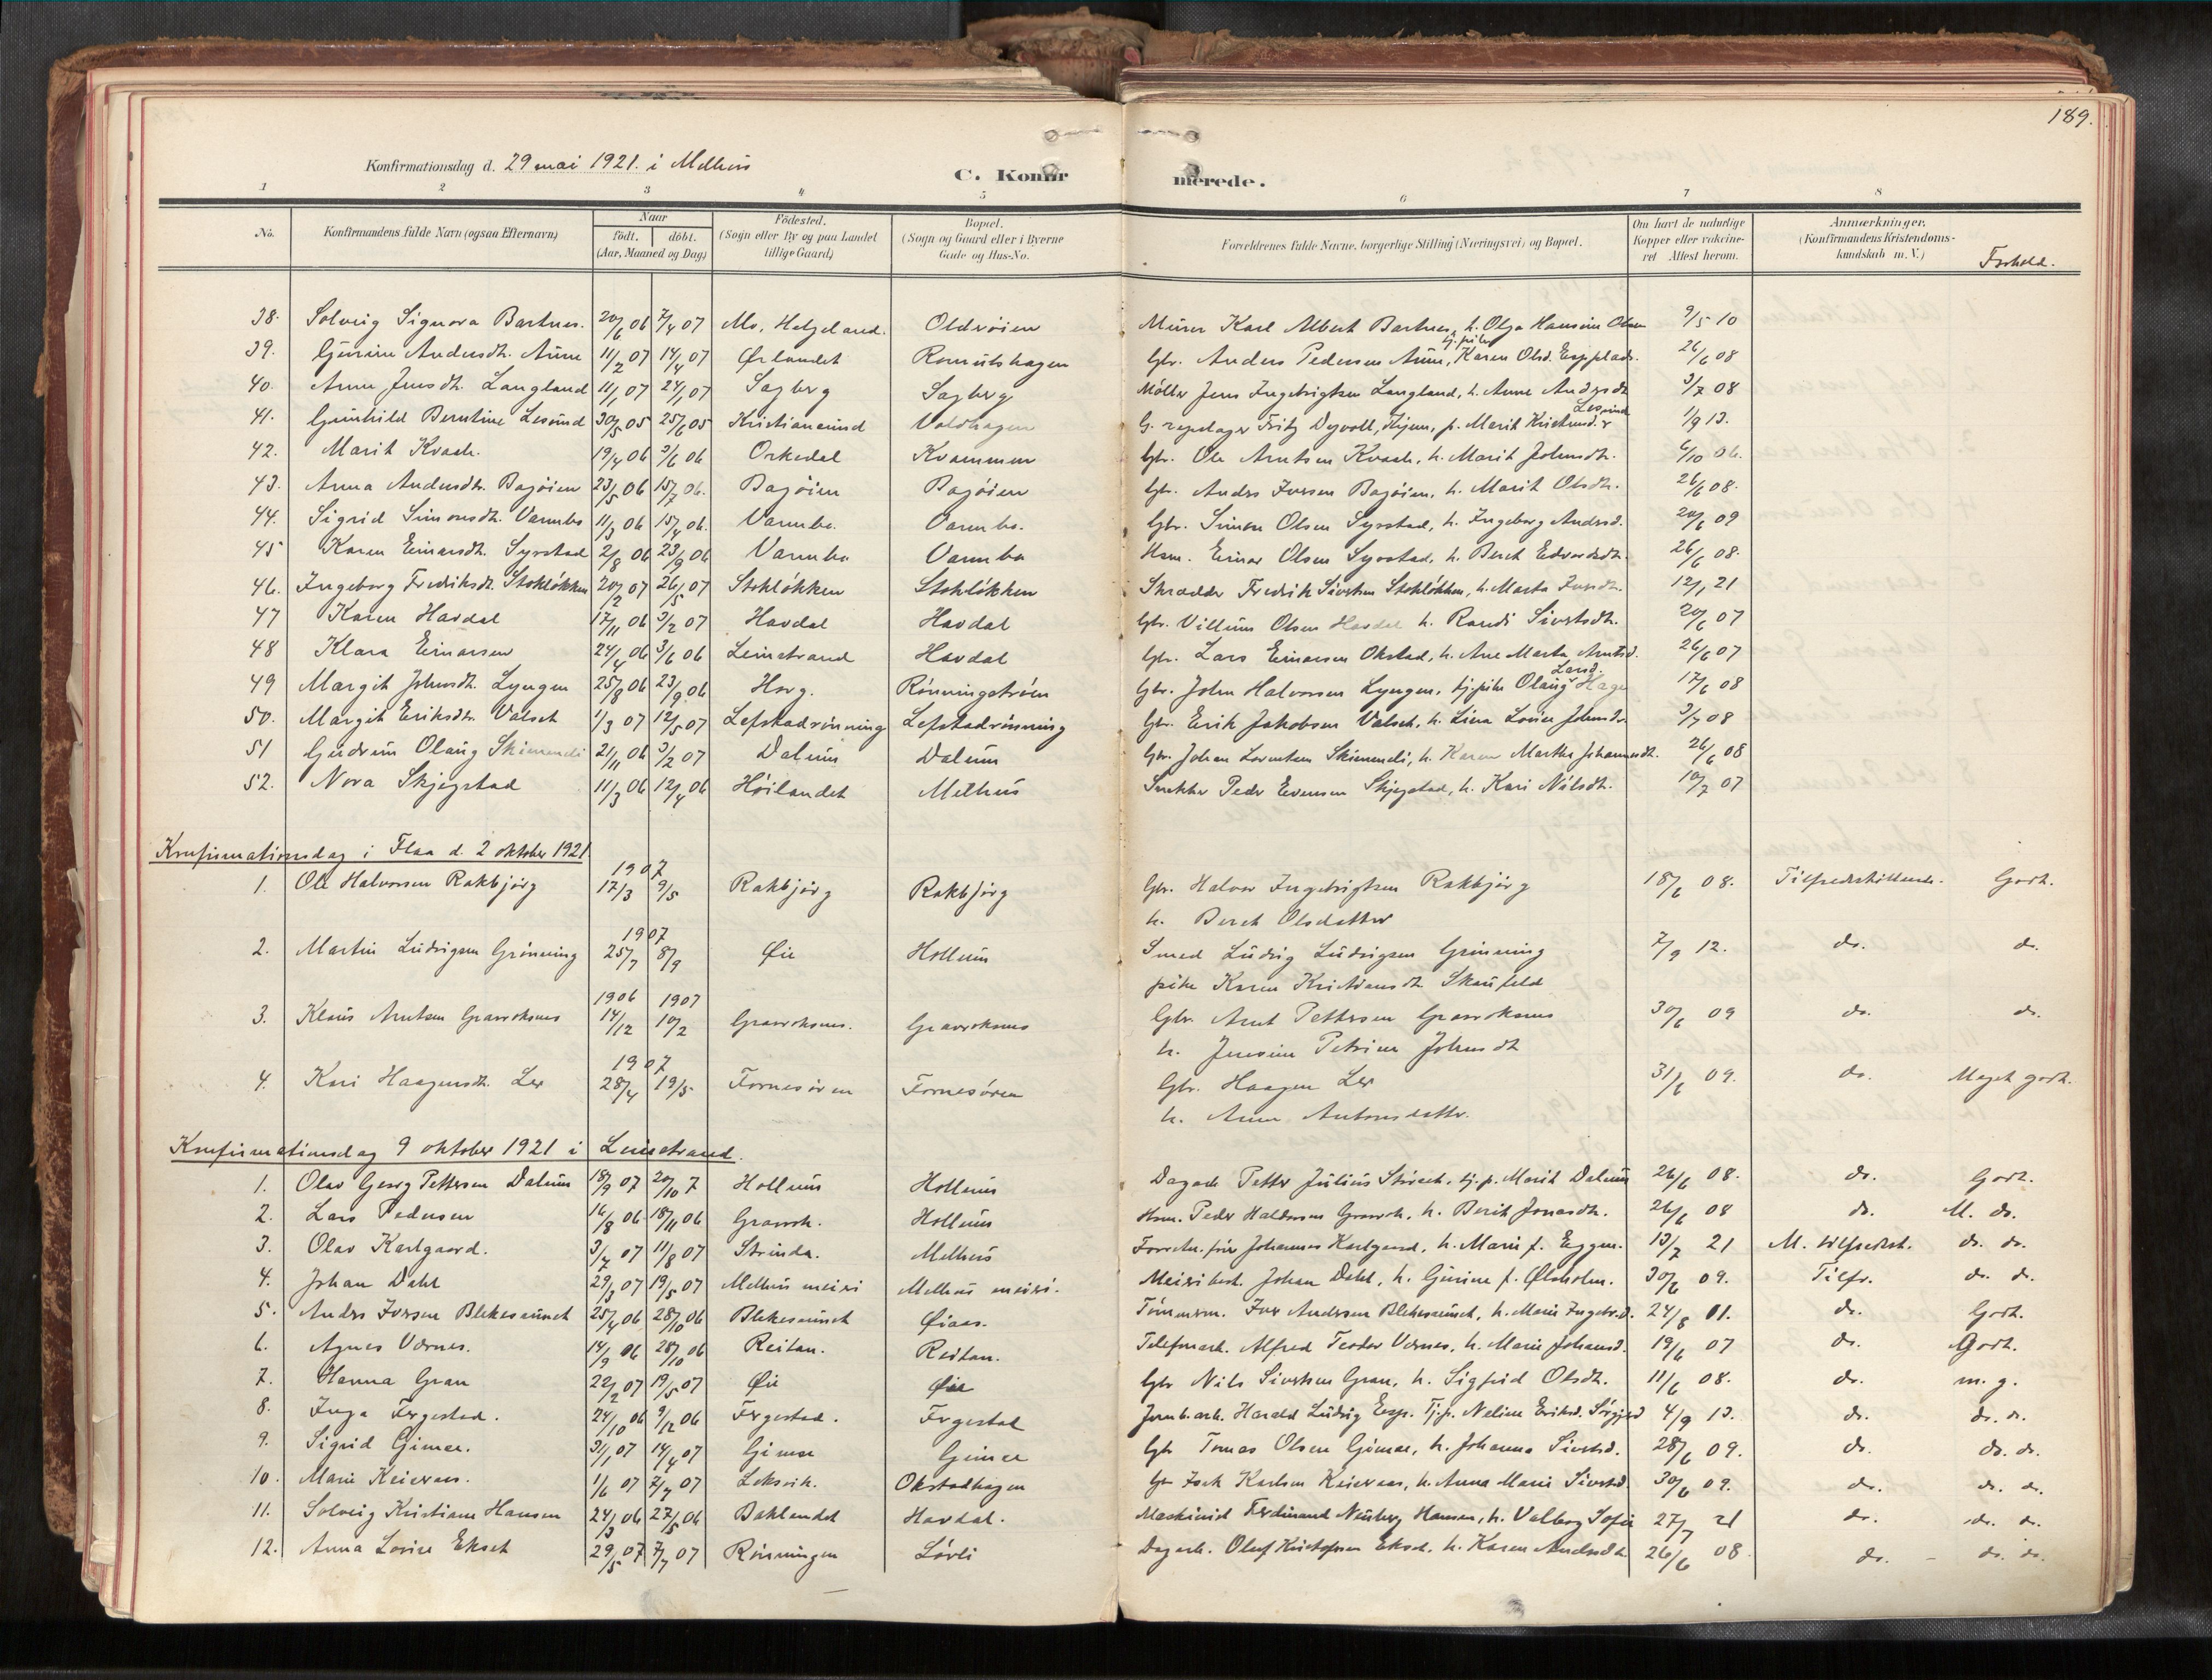 189.
Konfirmationsdag d. 29 mai 1921. i Melhus
C. Konfir merede.
1 2 3 4 5 6 7 8
No. Konfirmandens fulde Navn (ogsaa Efternavn) Naar födt. döbt. (Aar, Maaned og Dag) Födested. (Sogn eller By og paa Landet tillige Gaard) Bopæl. (Sogn og Gaard eller i Byerne Gade og Hus-No. Forældrenes fulde Navne, borgerlige Stilling (Næringsvei) og Bopæl. Om havt de naturlige Kopper eller vakcineret Attest herom. Anmærkninger. (Konfirmandens Kristendomskundskab m. V.) Forhold.
38. Solveig Signora Bartnes. 20/6 06 7/4 07 Mo, Helgeland. Oldrøien Murer Karl Albert Bartnes, h. Olga Hansine Olsen 9/5 10
39. Gurine Andersdt. Aune 11/2 07 14/4 07 Ørlandet Romulshagen Gbr. Anders Pedersen Aune, tj.pike Karen Olsd. 26/6 08
40. Anne Jensdt. Langland 11/1 07 24/1 07 Sagberg Sagberg Möller Jens Ingebrigtsen Langland, h. Anne Andersdt 3/7 08
41. Gunhild Berntine Lesund 30/5 05 25/6 05 Kristiansund Voldhagen Fritz Deyvoll, p. Marit Kristensd. Lesund 1/9 13.
42. Marit Kvaale. 19/4 06 3/6 06 Orkedal Kvammen Gbr. Ole Arntsen h. Marit Johnsdt. 6/10 06.
43. Anna Andersdt. Bagöien 23/5 06 15/7 06. Bagöien Bagöien Gbr. Anders Iversen Bagöien, h. Marit Olsdt. 26/6 08.
44. Sigrid Simonsdt. Varmbo 11/3 06 15/4 06. Varmbo. Varmbo. Gbr. Simon Olsen Syrstad, h. Ingeborg Andersd. 20/6 09
45 Karen Einarsdt. Syrstad 2/8 06 23/9 06 Varmbo Varmbo Hsm. Einar Olsen Syrstad, h. Beret Edvardsdt. 26/6 08.
46. Ingeborg Fredriksdt. Stokløkken 20/2 07 26/5 07 Stokløkken Stokløkken Skrædder Fredrik Sivertsen Stokløkken, h. Marta 12/1 21
47 Karen Havdal 17/11 06 3/2 07 Havdal Havdal Gbr. Villum Olsen Havdal h. Randi Sivertsdt. 20/6 07
48 Klara Einarsen 24/4 06 3/6 06 Leinstrand Havdal Gbr. Lars Einarsen Okstad, h. Ane Marta Arntsd. 26/6 07
49 Margit Johnsdt. Lyngen 25/8 06 23/9 06 Horg. Rønningstrøen Gbr. John Halvorsen Lyngen, tj.pike Olaug Larsd. Hage 17/6 08
50. Margit Eriksdt. Valset 1/3 07 12/5 07 Lefstadrønning Lefstadrønning Gbr. Erik Jakobsen Valset, h. Lina Lovise Johnsd. 3/7 08
51 Gudrun Olaug Skinnenli 21/11 06 3/2 07 Dalum Dalum Gbr. Johan Lorentsen Skinnenli, h. Karen Marthe Johannesdt. 26/6 08
52. Nora Skjegstad 11/3 06 12/4 06 Høilandet Melhus Snekker Peder Evensen Skjegstad, h. Kari Nilsdt. 10/7 07
Konfirmationsdag i Flaa d. 2 oktober 1921.
1907
1. Ole Halvorsen Rakbjørg 17/3 9/5 Rakbjørg Rakbjørg Gbr. Halvor Ingebrigtsen Rakbjørg 18/6 08. Tilfredsstillende. Godt.
h. Beret Olsdatter
1907
2. Martin Ludvigsen Grönning 25/7 8/9 Øie Hollum Smed Ludvig Ludvigsen Grönning 7/9 12. do. do.
pike Karen Kristiansdt. Skaufeld
1906 1907
3. Klaus Arntsen Gravroksmo 14/12 10/2 Gravroksmo. Gravroksmo Gbr. Arnt Pettersen Gravroksmo 30/6 09 do. do.
h. Jensine Petrine Johnsdt
1907
4. Kari Haagensdt. Ler 28/4 19/5 Fornesøren Fornesøren Gbr. Haagen Ler 31/6 09. do. Meget godt.
h. Anne Antonsdatter.
Konfirmationsdag 9 oktober 1921 i Leinstrand.
1. Olav Georg Pettersen Dalum 18/9 07 20/10 7 Hollum Hollum Dagarb. Petter Julius tj. p. Marit Dalum 26/6 08. do. Godt.
2. Lars Pedersen 16/8 06 18/11 06 Gravrok. Hollum Hsm. Peder Haldorsen Gravrok, h. Berit Jonasdt. 26/6 08 do. M. do.
3. Olav Karlgaard. 3/7 07 11/8 07 Strinda. Melhus Johannes Karlgaard, h. Marie f. Eggen. 13/7 21 M. tilfredsst. do. do.
4. Johan Dahl 29/3 07 19/5 07 Melhus meieri Melhus meieri. Meieribest. Johan Dahl, h. Gurine f. Ølsholm. 30/6 09. Tilfr. do. do.
5. Anders Iversen Blekesaunet 25/4 06 28/10 06 Blekesaunet Øiaas. Tömmerm. Iver Andersen Blekesaunet, h. Marie Ingebr.d. 24/8 01. do. Godt.
6. Agnes Værnes. 14/9 06 28/10 06 Reitan. Reitan. Telefonarb. Alfred Teodor Værnes, h. Marie Johansd. 19/6 07 do. Godt.
7. Hanna Gran 22/2 07 19/5 07 Øie Øie Gbr Nils Sivertsen Gran, h. Sigfrid Olsdt. 11/6 08. do. m. g.
8. Inga Fergestad. 24/10 06 9/12 06 Fergestad. Fergestad Jernb.arb. Harald Ludvig Tj.p. Neline Eriksd. 4/9 13. do. do. do.
9. Sigrid Gimse. 31/1 07 14/4 07 Gimse Gimse Gbr Tomas Olsen Gimse, h. Johanna Sivertsd. 28/6 09. do. do. do.
10. Marie Keiseraas. 1/6 07 7/7 07 Leksvik. Okstadhagen Karlsen Keiseraas, h. Anna Marie Sivertsd. 30/6 09. do. do. do.
11. Solveig Kristiane Hansen 24/3 06 27/5 06 Baklandet Havdal. Maskinist Ferdinand Neuberg Hansen, h. Valborg Sofie 27/7 21 do. do. do.
12. Anna Lovise Ekset 29/5 07 7/7 07 Rönningen Løvli Dagarb. Oluf Kristofersen Ekset, h. Karen Andersdt. 26/6 08 do. - do. do.